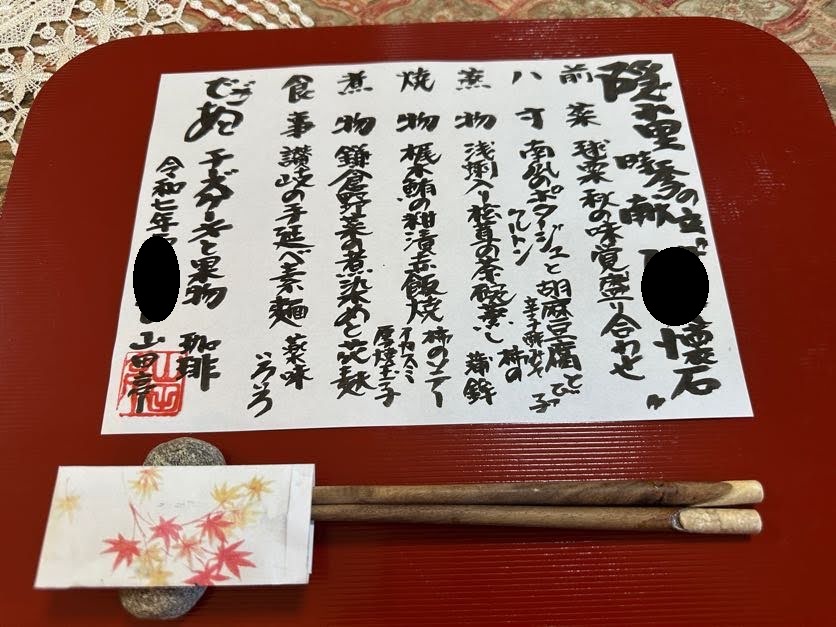 隠れ里 時季の
献
懐石"
前菜 毬栗 秋の味覚盛り合わせ
八寸 南瓜のポタージュと胡麻豆腐
クルトン 辛子酢みそ 柿の
蒸物 浅蜊入り松茸の茶碗蒸し 蒲鉾
焼物 栃木鮪の粕漬赤飯焼 柿のソテー
イカスミ 厚焼玉子
煮物 鎌倉野菜の煮染めと花麩
食事 讃岐の手延べ素麺 薬味いろいろ
でざあと チーズケーキと果物 珈琲
令和七年 山田亭